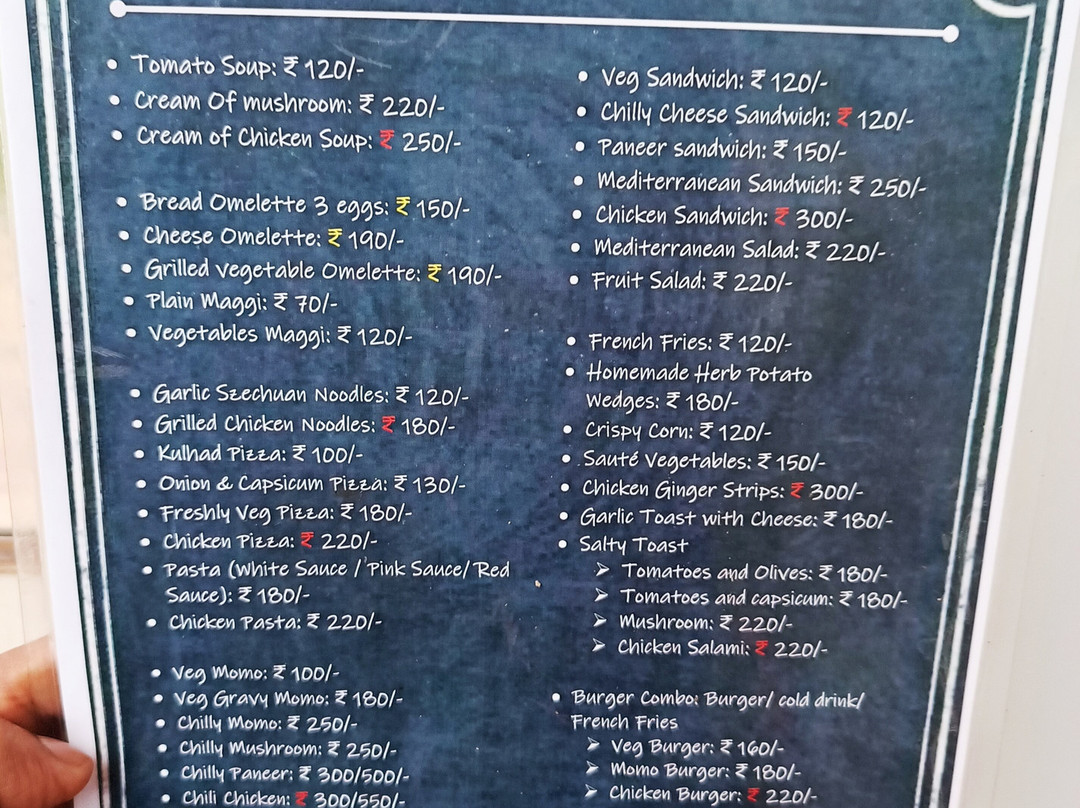 • Tomato Soup: ₹ 120/-
• Cream Of mushroom: ₹ 220/-
• Cream of Chicken Soup: ₹ 250/-
• Bread Omelette 3 eggs: ₹ 150/-
• Cheese Omelette: ₹ 190/-
• Grilled vegetable Omelette: ₹ 190/-
• Plain Maggi: ₹ 70/-
• Vegetables Maggi: ₹ 120/-
• Garlic Szechuan Noodles: ₹ 120/-
• Grilled Chicken Noodles: ₹ 180/-
• Kulhad Pizza: ₹ 100/-
• Onion & Capsicum Pizza: ₹ 130/-
• Freshly Veg Pizza: ₹ 180/-
• Chicken Pizza: ₹ 220/-
• Pasta (White Sauce / Pink Sauce/ Red
Sauce): ₹ 180/-
• Chicken Pasta: ₹ 220/-
• Veg Momo: ₹ 100/-
• Veg Gravy Momo: ₹ 180/-
• Chilly Momo: ₹ 250/-
• Chilly Mushroom: ₹ 250/-
• Chilly Paneer: ₹ 300/500/-
• Chili Chicken: ₹ 300/550/-
• Veg Sandwich: ₹ 120/-
• Chilly Cheese Sandwich: ₹ 120/-
• Paneer sandwich: ₹ 150/-
• Mediterranean Sandwich: ₹ 250/-
• Chicken Sandwich: ₹ 300/-
• Mediterranean Salad: ₹ 220/-
• Fruit Salad: ₹ 220/-
• French Fries: ₹ 120/-
• Homemade Herb Potato
Wedges: ₹ 180/-
• Crispy Corn: ₹ 120/-
• Sauté Vegetables: ₹ 150/-
• Chicken Ginger Strips: ₹ 300/-
• Garlic Toast with Cheese: ₹ 180/-
• Salty Toast
➢ Tomatoes and Olives: ₹ 180/-
➢ Tomatoes and capsicum: ₹ 180/-
➢ Mushroom: ₹ 220/-
➢ Chicken Salami: ₹ 220/-
• Burger Combo: Burger/ cold drink/
French Fries
➢ Veg Burger: ₹ 160/-
➢ Momo Burger: ₹ 180/-
➢ Chicken Burger: ₹ 220/-